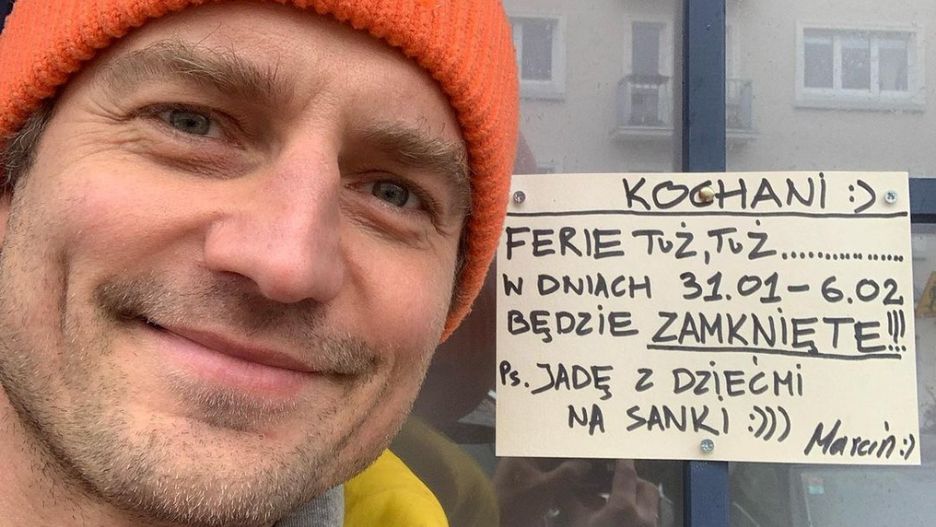 KOCHANI :)
FERIE TUŻ, TUŻ..............
W DNIACH 31.01 - 6.02
BĘDZIE ZAMKNIĘTE!!!
Ps. JADĘ Z DZIEĆMI
NA SANKI :)))
Marcin :)